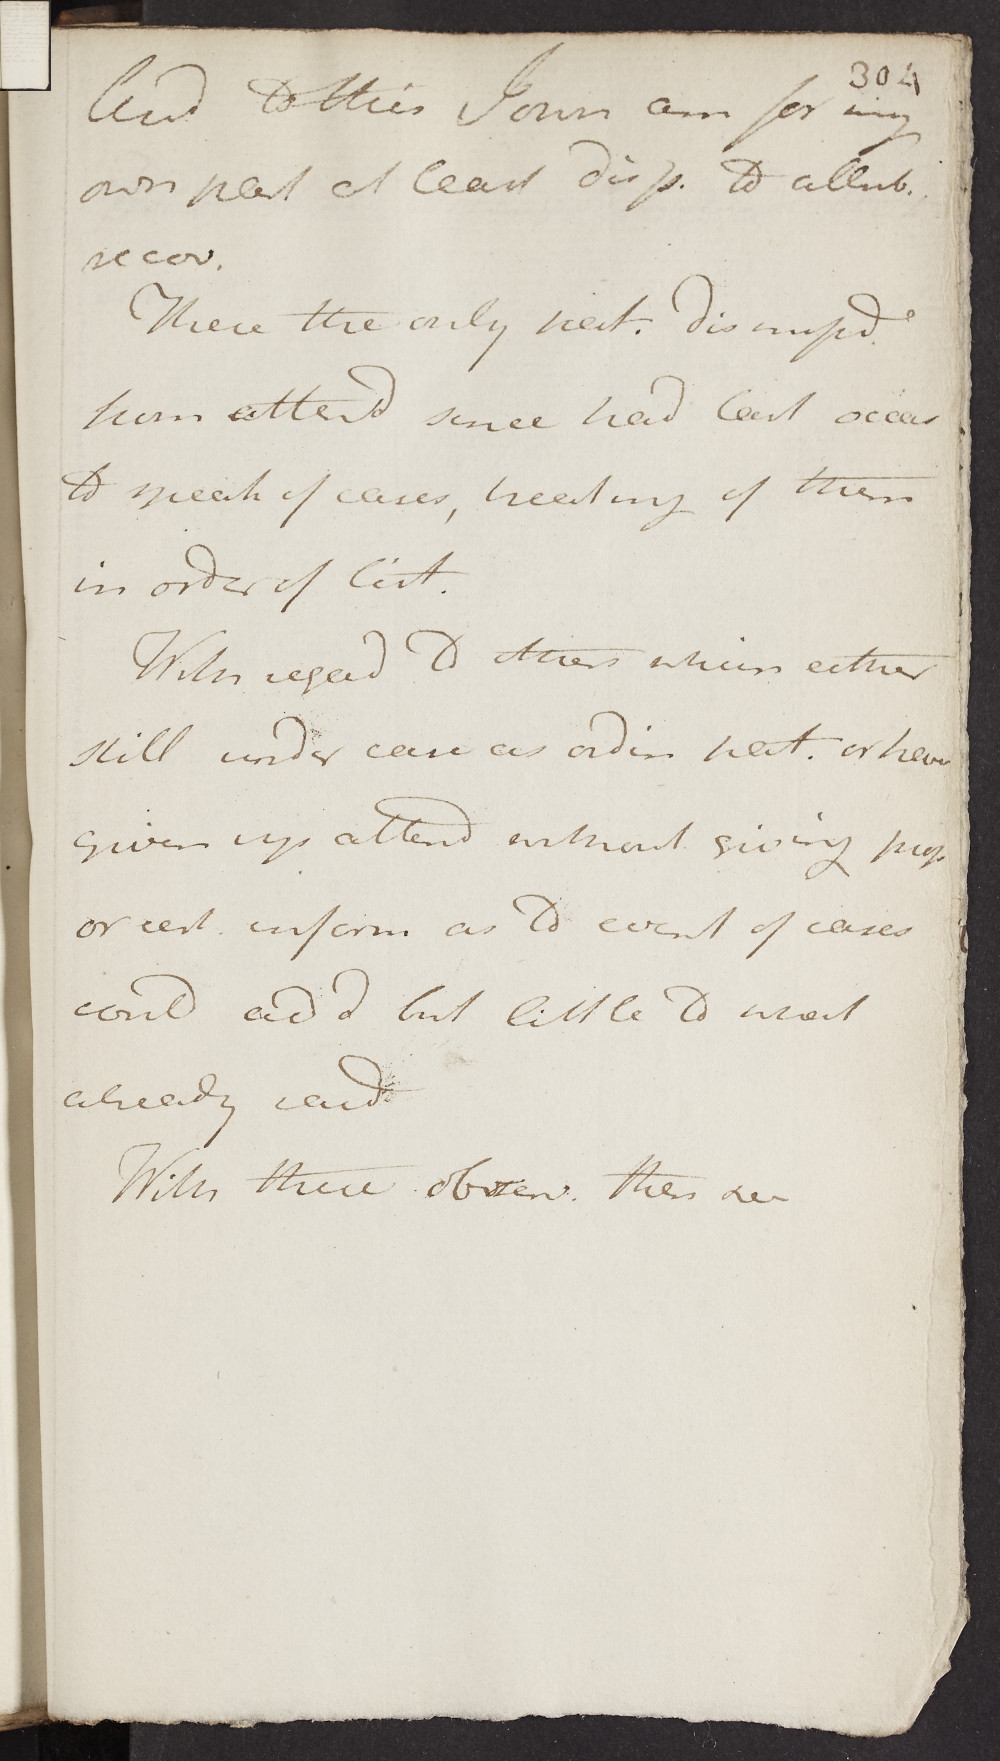 304
And to this I own am for my
own part at least disp. to attrib.
recov.
These the only pat. dismissd.
from attend since had last occas
to speak of cases, treating of them
in order of list.
With regard to others whim either
still under care as ordin pat. or have
given up attend without giving prop
or cert. inform as to event of cases
could add but little to what
already said
With these observ. then